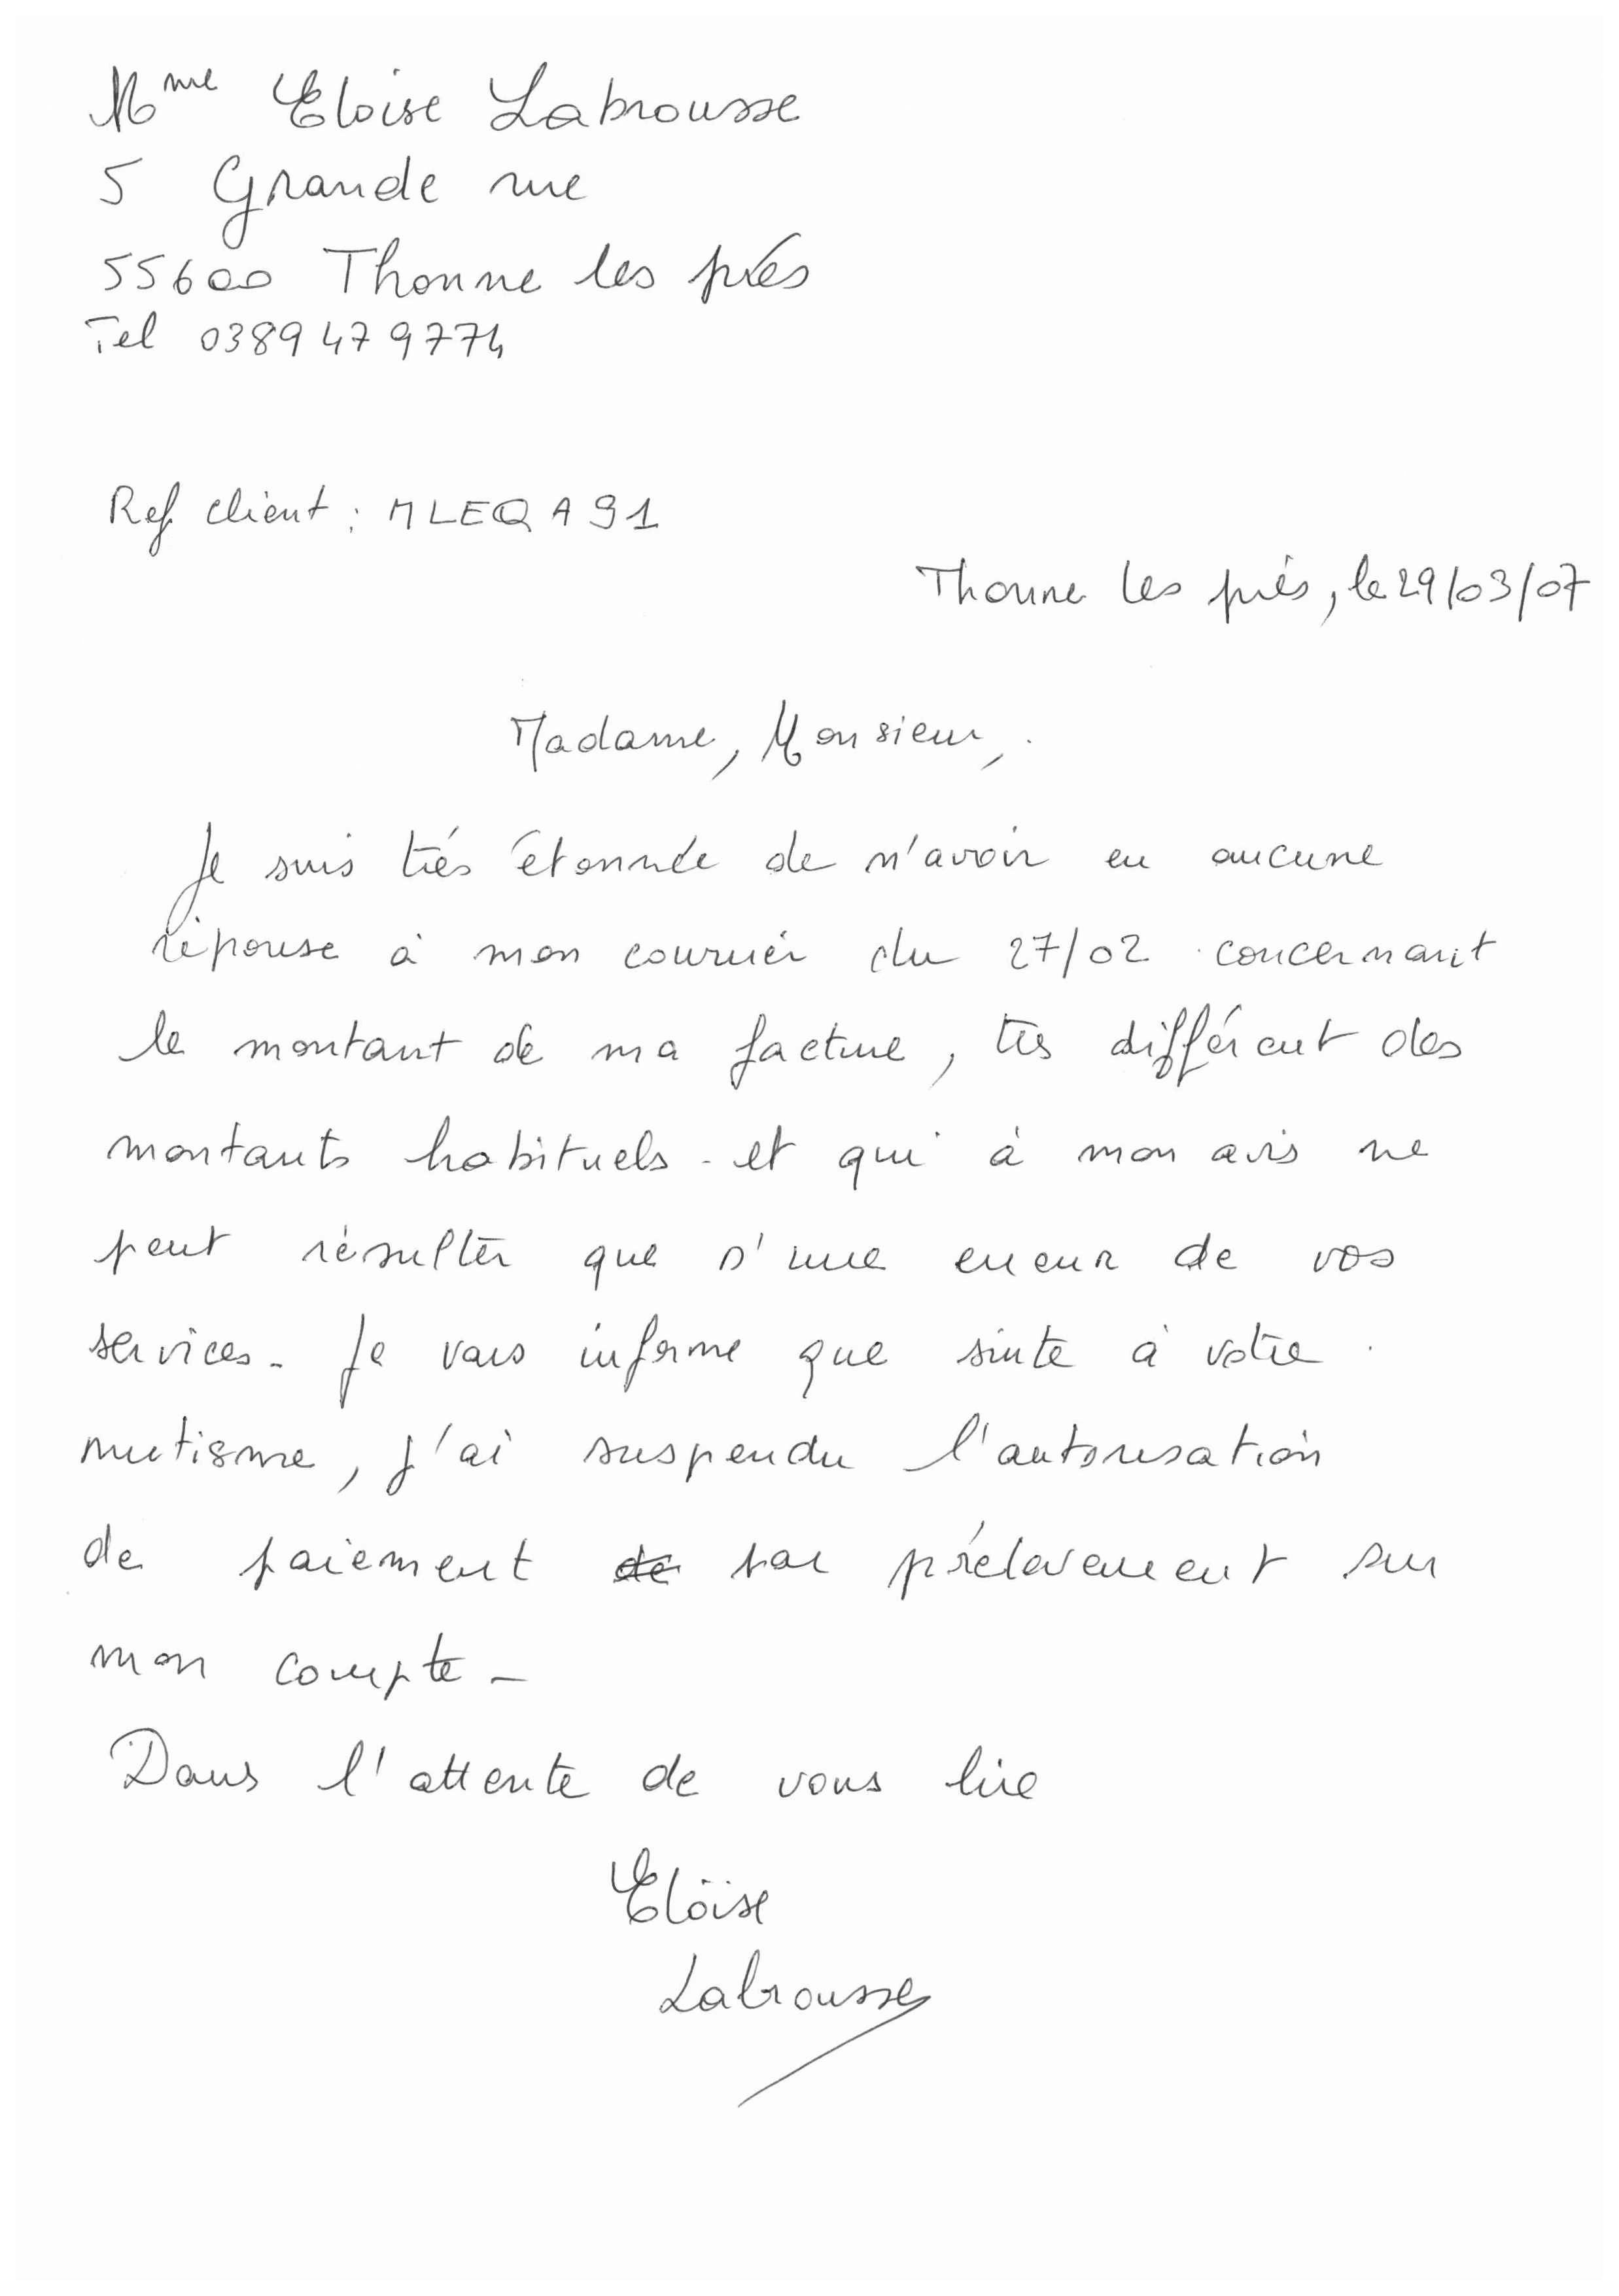 Mme Eloise Labrousse
5 Grande rue
55600 Thonne les prés
Tel 0389479774
Ref client : MLEQA91
Thonne les prés, le 29/03/07
Madame, Monsieur,
Je suis très étonnée de n'avoir eu aucune
réponse à mon courrier du 27/02 concernant
le montant de ma facture, très différent des
montants habituels - et qui à mon avis ne
peut résulter que d'une erreur de vos
services - Je vous informe que suite à votre
mutisme, j'ai suspendu l'autorisation
de paiement de par prélevement sur
mon compte -
Dans l'attente de vous lire
Eloïse
Labrousse